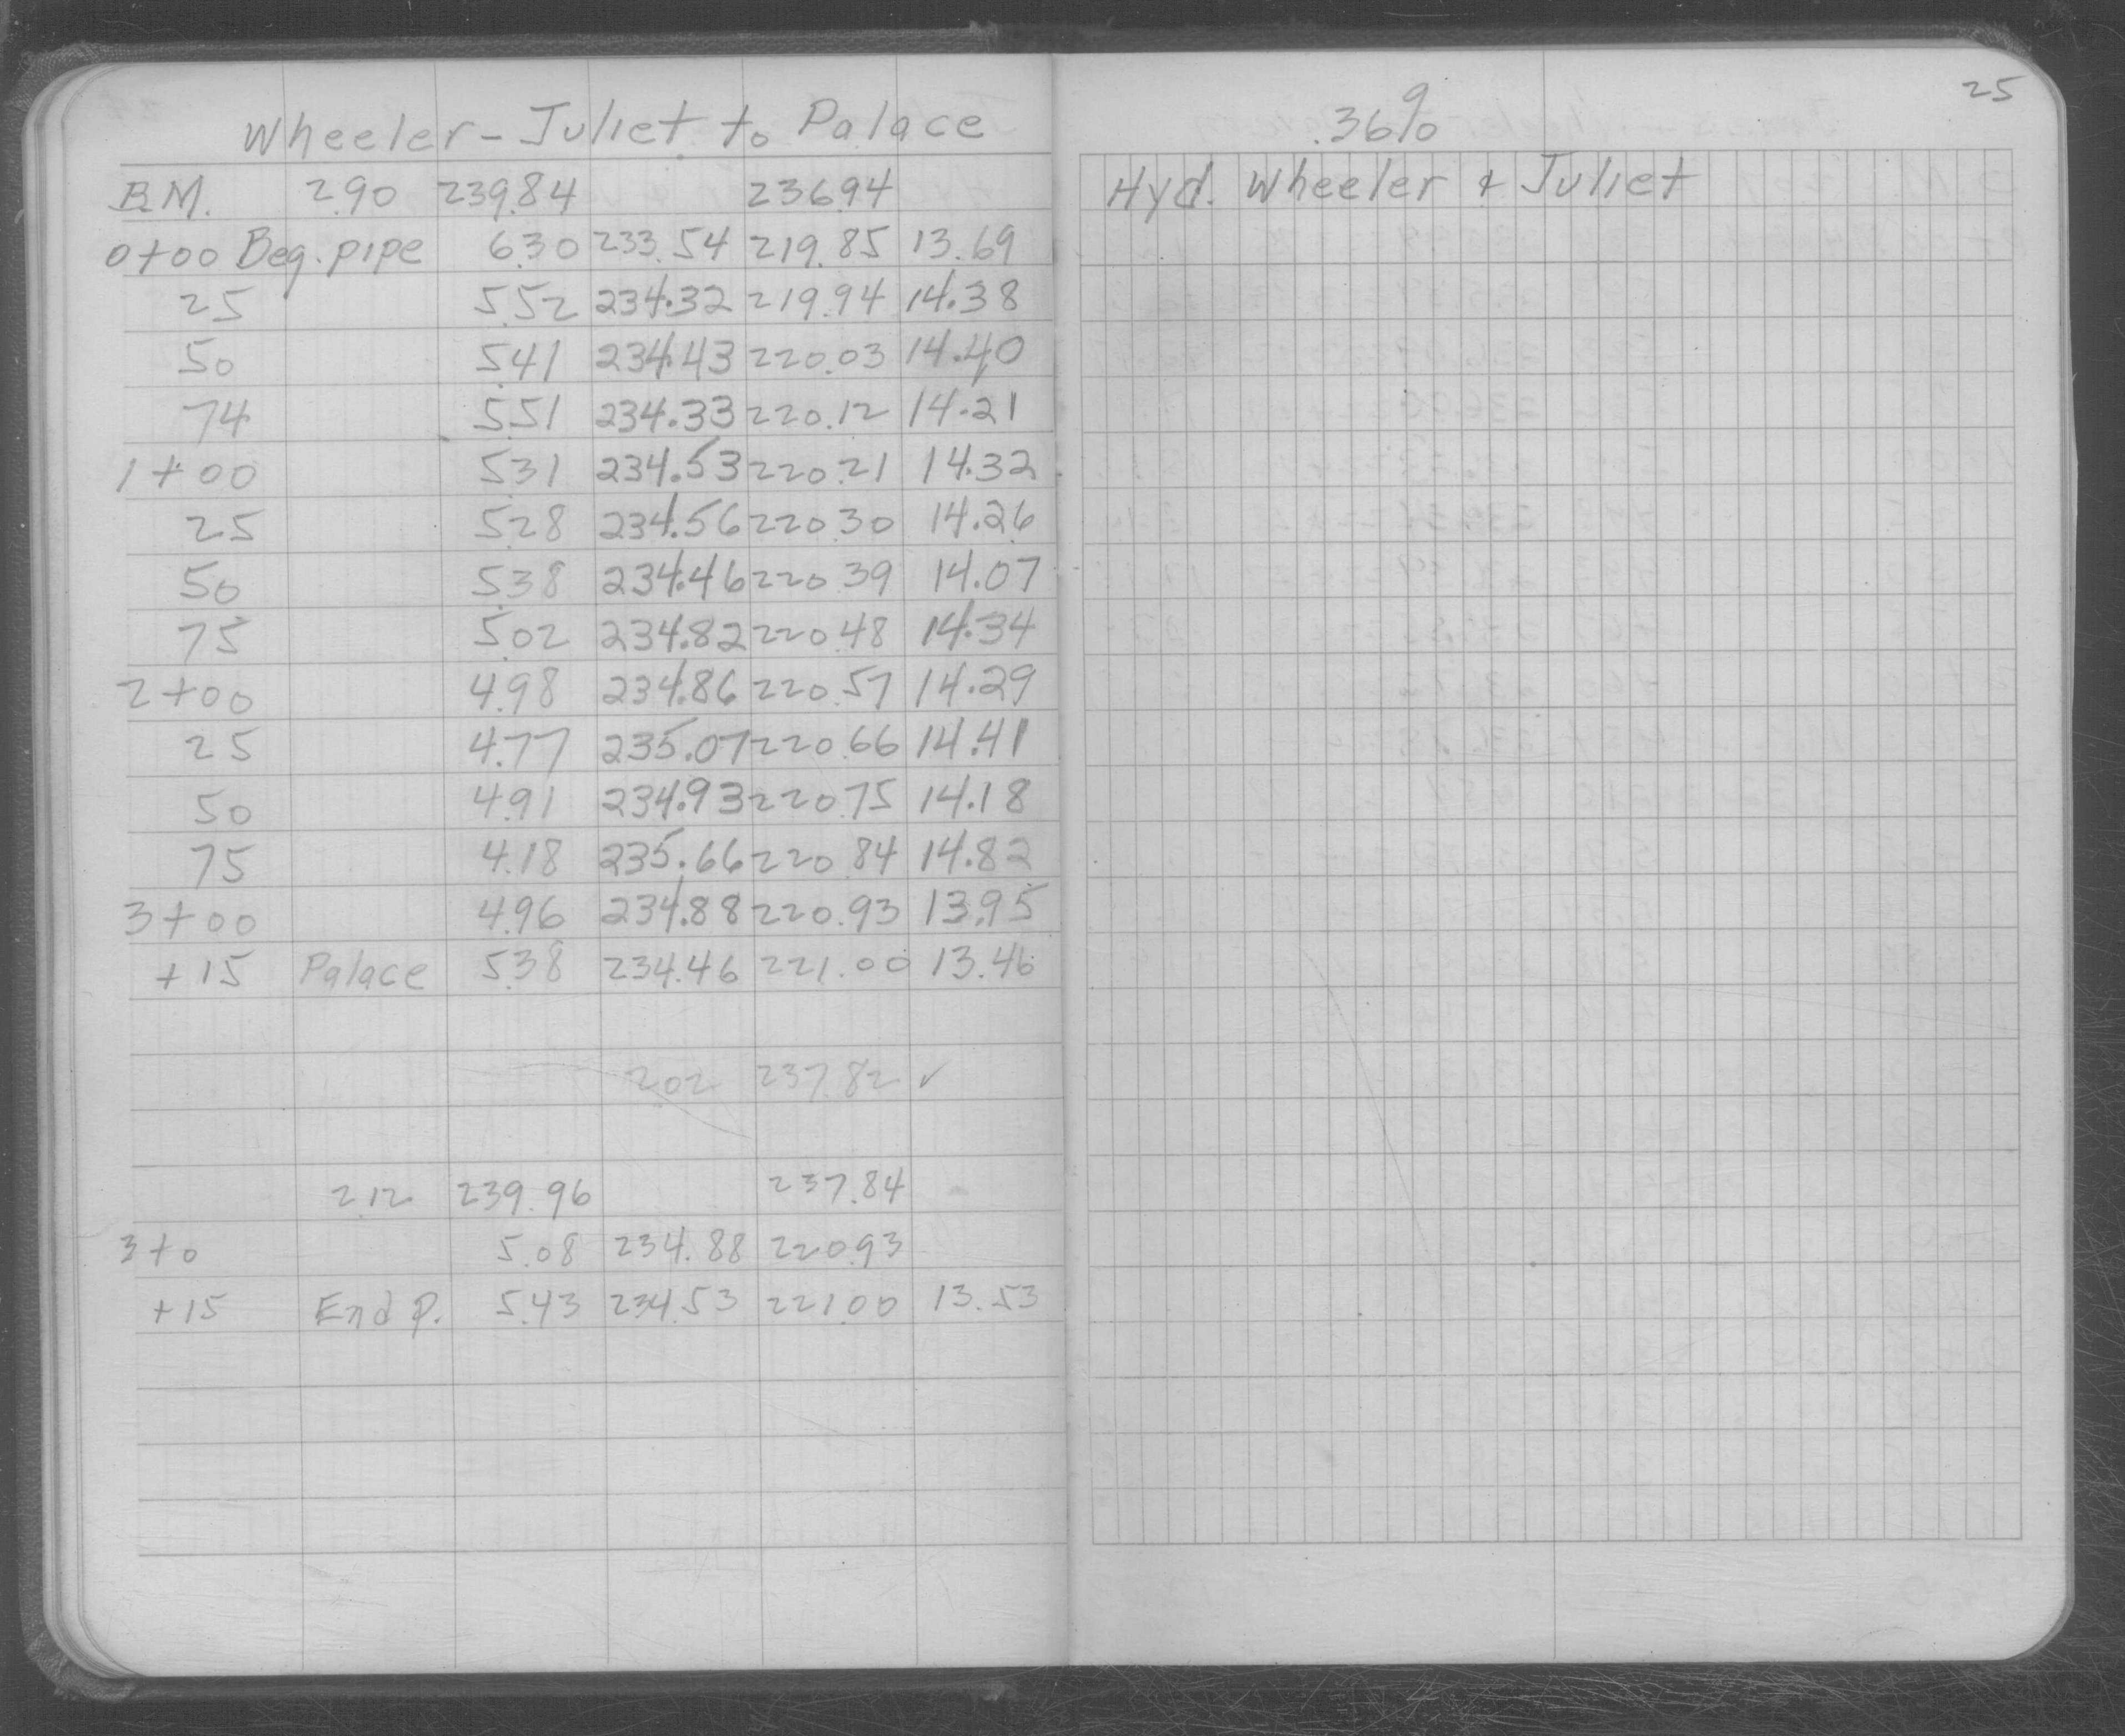 Wheeler - Juliet to Palace
B.M. 2.90 239.84 236.94
0+00 Beg. pipe 6.30 233.54 219.85 13.69
25 5.52 234.32 219.94 14.38
50 5.41 234.43 220.03 14.40
74 5.51 234.33 220.12 14.21
1+00 5.31 234.53 220.21 14.32
25 5.28 234.56 220.30 14.26
50 5.38 234.46 220.39 14.07
75 5.02 234.82 220.48 14.34
2+00 4.98 234.86 220.57 14.29
25 4.77 235.07 220.66 14.41
50 4.91 234.93 220.75 14.18
75 4.18 235.66 220.84 14.82
3+00 4.96 234.88 220.93 13.95
+15 Palace 5.38 234.46 221.00 13.46
2.02 237.82 ✓
2.12 239.96 237.84
3+0 5.08 234.88 220.93
+15 End P. 5.43 234.53 221.00 13.53
25
.36%
Hyd. Wheeler & Juliet